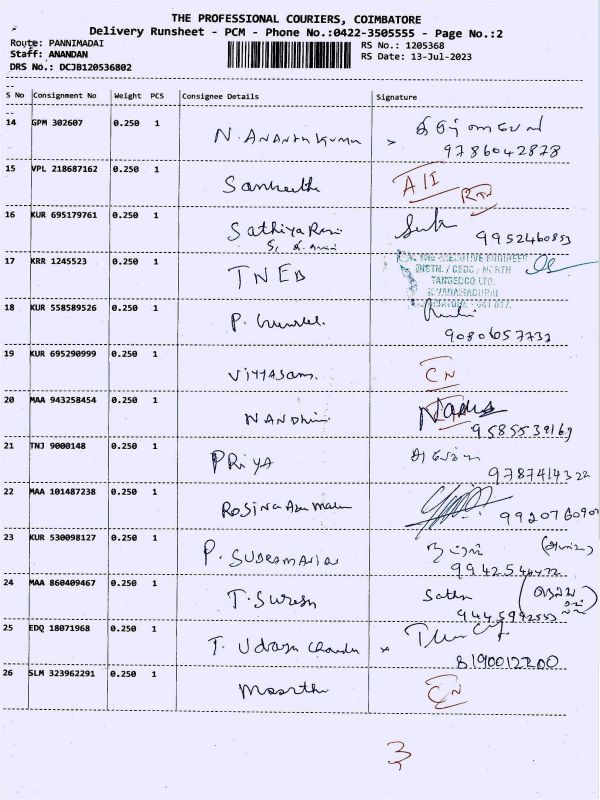 THE PROFESSIONAL COURIERS, COIMBATORE
Delivery Runsheet - PCM - Phone No.:0422-3505555 - Page No.:2
Route: PANNIMADAI
RS No.: 1205368
Staff: ANANDAN
RS Date: 13-Jul-2023
DRS No.: DCJB120536802
S No Consignment No Weight PCS Consignee Details Signature
14 GPM 302607 0.250 1 N. Ananthkumar
9786042878
15 VPL 218687162 0.250 1 Sankeeth A/I RTN
16 KUR 695179761 0.250 1 Sathiya Rani
9952460853
17 KRR 1245523 0.250 1 TNEB
TANGEDCO LTD.
18 KUR 558589526 0.250 1 P.
90806057732
19 KUR 695290999 0.250 1 CN
20 MAA 943258454 0.250 1 NANDhini
9585539169
21 TNJ 9000148 0.250 1 PRIYA
9787414322
22 MAA 101487238 0.250 1 ROSINA
9920760907
23 KUR 530098127 0.250 1 P. SUBRAMANIAN
24 MAA 860409467 0.250 1 T. Suresh
9445992553
25 EDQ 18071968 0.250 1 T. Udaya Chandra
8190012200
26 SLM 323962291 0.250 1 Moorthi CN
3